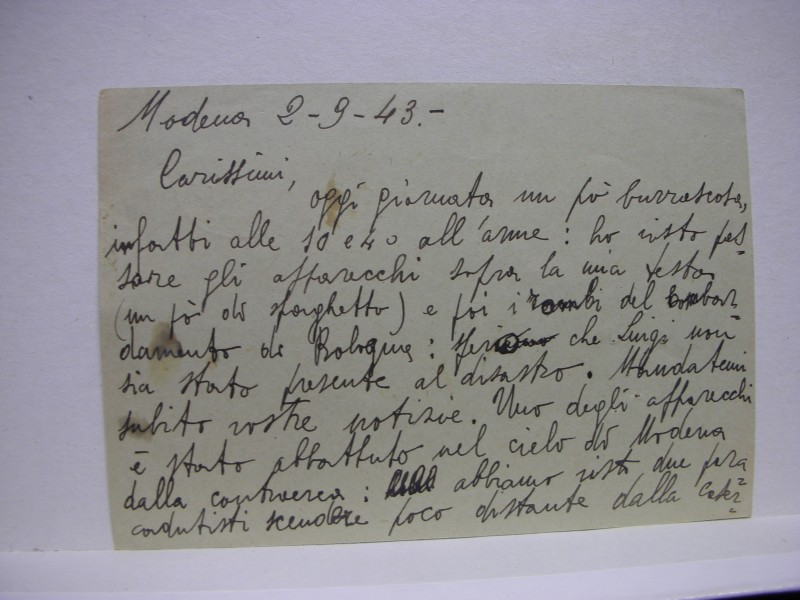 Modena 2-9-43.-
Carissimi,
oggi giornata un pò burrascosa,
infatti alle 10 e 40 all'arme: ho visto pas=
sare gli apparecchi sopra la mia testa
(un pò di spaghetto) e poi i rombi del bombar=
damento di Bologna: speriamo che Luigi non
sia stato presente al disastro. Mandatemi
subito vostre notizie. Uno degli apparecchi
è stato abbattuto nel cielo di Modena
dalla controaerea: abbiamo visto due para=
cadutisti scendere poco distante dalla caser=